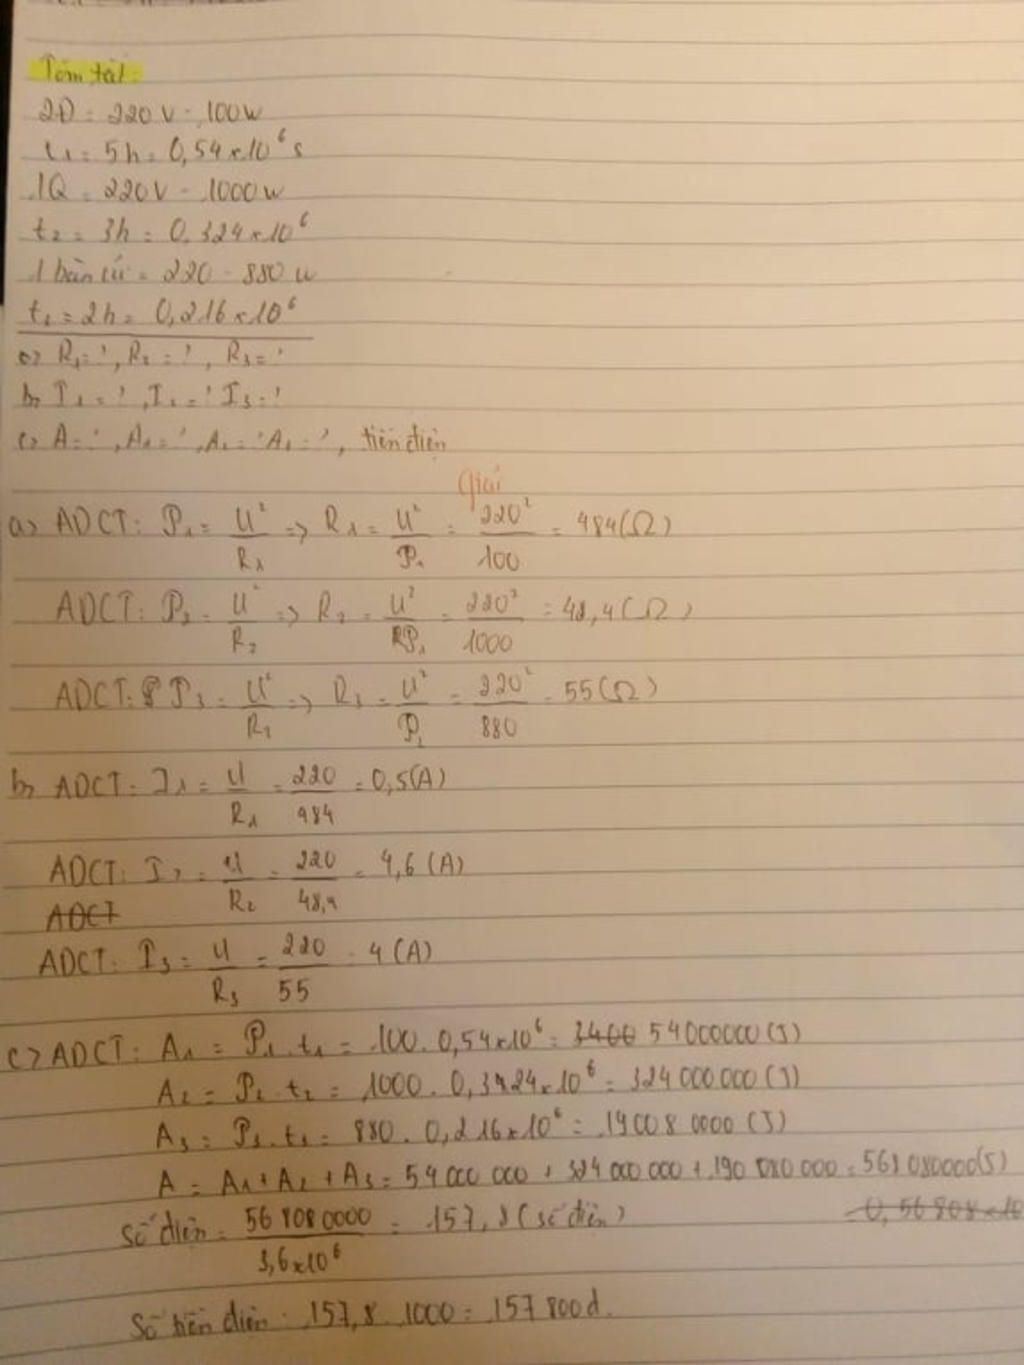 Tóm tắt:
2Đ = 220V - 100W
t₁ = 5h = 0,54×10⁶ s
1Q = 220V - 1000W
t₂ = 3h = 0,324×10⁶
1 bàn ủi = 220 - 880 W
t₃ = 2h = 0,216×10⁶
a) R₁ = ?, R₂ = ?, R₃ = ?
b) I₁ = ?, I₂ = ? I₃ = ?
c) A = ?, A₁ = ?, A₂ = ? A₃ = ?, tiền điện
Giải
a) ADCT: P₁ = U²/R₁ => R₁ = U²/P₁ = 220²/100 = 484(Ω)
ADCT: P₂ = U²/R₂ => R₂ = U²/P₂ = 220²/1000 = 48,4(Ω)
ADCT: P₃ = U²/R₃ => R₃ = U²/P₃ = 220²/880 = 55(Ω)
b) ADCT: I₁ = U/R₁ = 220/484 = 0,5(A)
ADCT: I₂ = U/R₂ = 220/48,4 = 4,6(A)
ADCT
ADCT: I₃ = U/R₃ = 220/55 = 4(A)
c) ADCT: A₁ = P₁.t₁ = 100. 0,54×10⁶ = 3400 54000000(J)
A₂ = P₂.t₂ = 1000. 0,324×10⁶ = 324000000(J)
A₃ = P₃.t₃ = 880. 0,216×10⁶ = 190080000(J)
A = A₁+A₂+A₃ = 54000000 + 324000000 + 190080000 = 568080000(J)
= 0,56808×10
Số điện = 568080000/3,6×10⁶ = 157,8 (số điện)
Số tiền điện: 157,8.1000 = 157800đ.